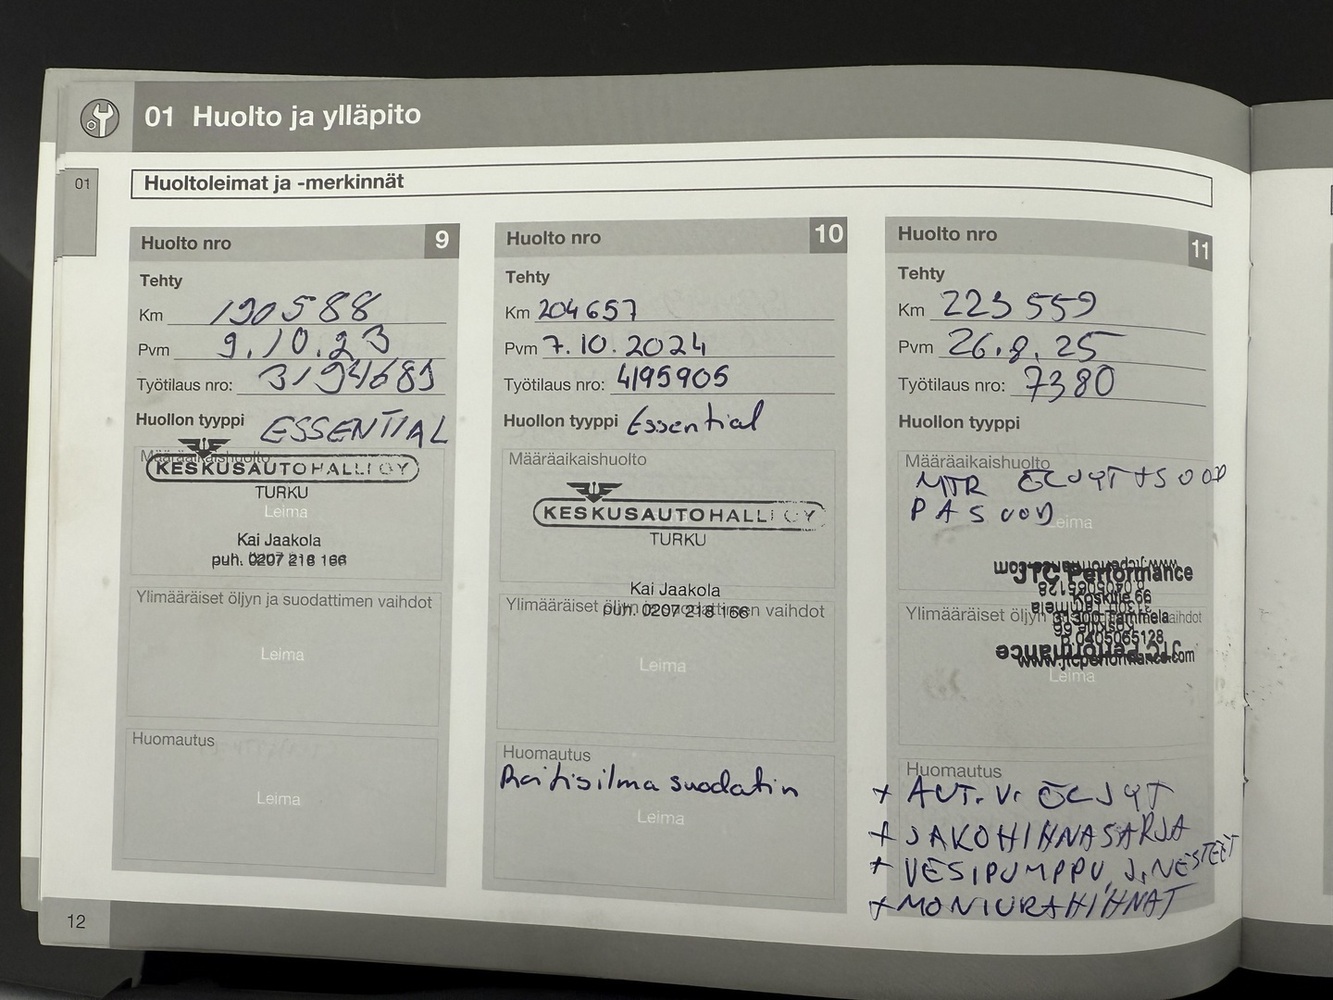 01 Huolto ja ylläpito
01
Huoltoleimat ja -merkinnät
Huolto nro 9
Tehty
Km 190588
Pvm 9.10.23
Työtilaus nro: 3194689
Huollon tyyppi ESSENTIAL
Määräaikaishuolto
KESKUSAUTOHALLI OY
TURKU
Leima
Kai Jaakola
puh. 0207 218 166
Ylimääräiset öljyn ja suodattimen vaihdot
Leima
Huomautus
Leima
Huolto nro 10
Tehty
Km 204657
Pvm 7.10.2024
Työtilaus nro: 4195905
Huollon tyyppi Essential
Määräaikaishuolto
KESKUSAUTOHALLI OY
TURKU
Kai Jaakola
puh. 0207 218 166
Ylimääräiset öljyn ja suodattimen vaihdot
Leima
Huomautus
Raitisilma suodatin
Leima
Huolto nro 11
Tehty
Km 223559
Pvm 26.8.25
Työtilaus nro: 7380
Huollon tyyppi
Määräaikaishuolto
MTR ÖLJYT +SUOD
Leima
JTC Performance
Koskitie 66
31300 Tammela
p.0405065128
www.jtcperformance.com
Ylimääräiset öljyn vaihdot
Leima
Huomautus
+ AUT. V. ÖLJYT
+ JAKOHIHNASARJA
+ VESIPUMPPU, J.NESTEET
+ MONIURAHIHNAT
12